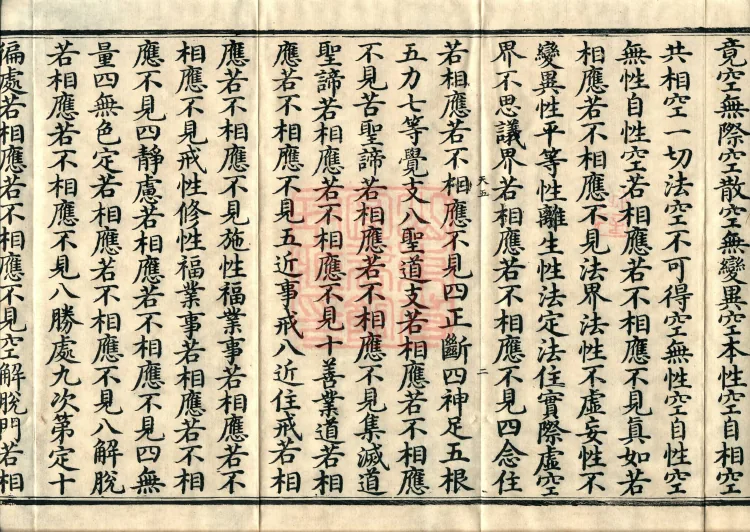 竟空無際空散空無變異空本性空自相空
共相空一切法空不可得空無性空自性空
無性自性空若相應若不相應不見真如若
相應若不相應不見法界法性不虛妄性不
變異性平等性離生性法定法住實際虛空
界不思議界若相應若不相應不見四念住
天五 二
若相應若不相應不見四正斷四神足五根
五力七等覺支八聖道支若相應若不相應
不見苦聖諦若相應若不相應不見集滅道
聖諦若相應若不相應不見十善業道若相
應若不相應不見五近事戒八近住戒若相
應若不相應不見施性福業事若相應若不
相應不見戒性修性福業事若相應若不相
應不見四靜慮若相應若不相應不見四無
量四無色定若相應若不相應不見八解脫
若相應若不相應不見八勝處九次第定十
徧處若相應若不相應不見空解脫門若相